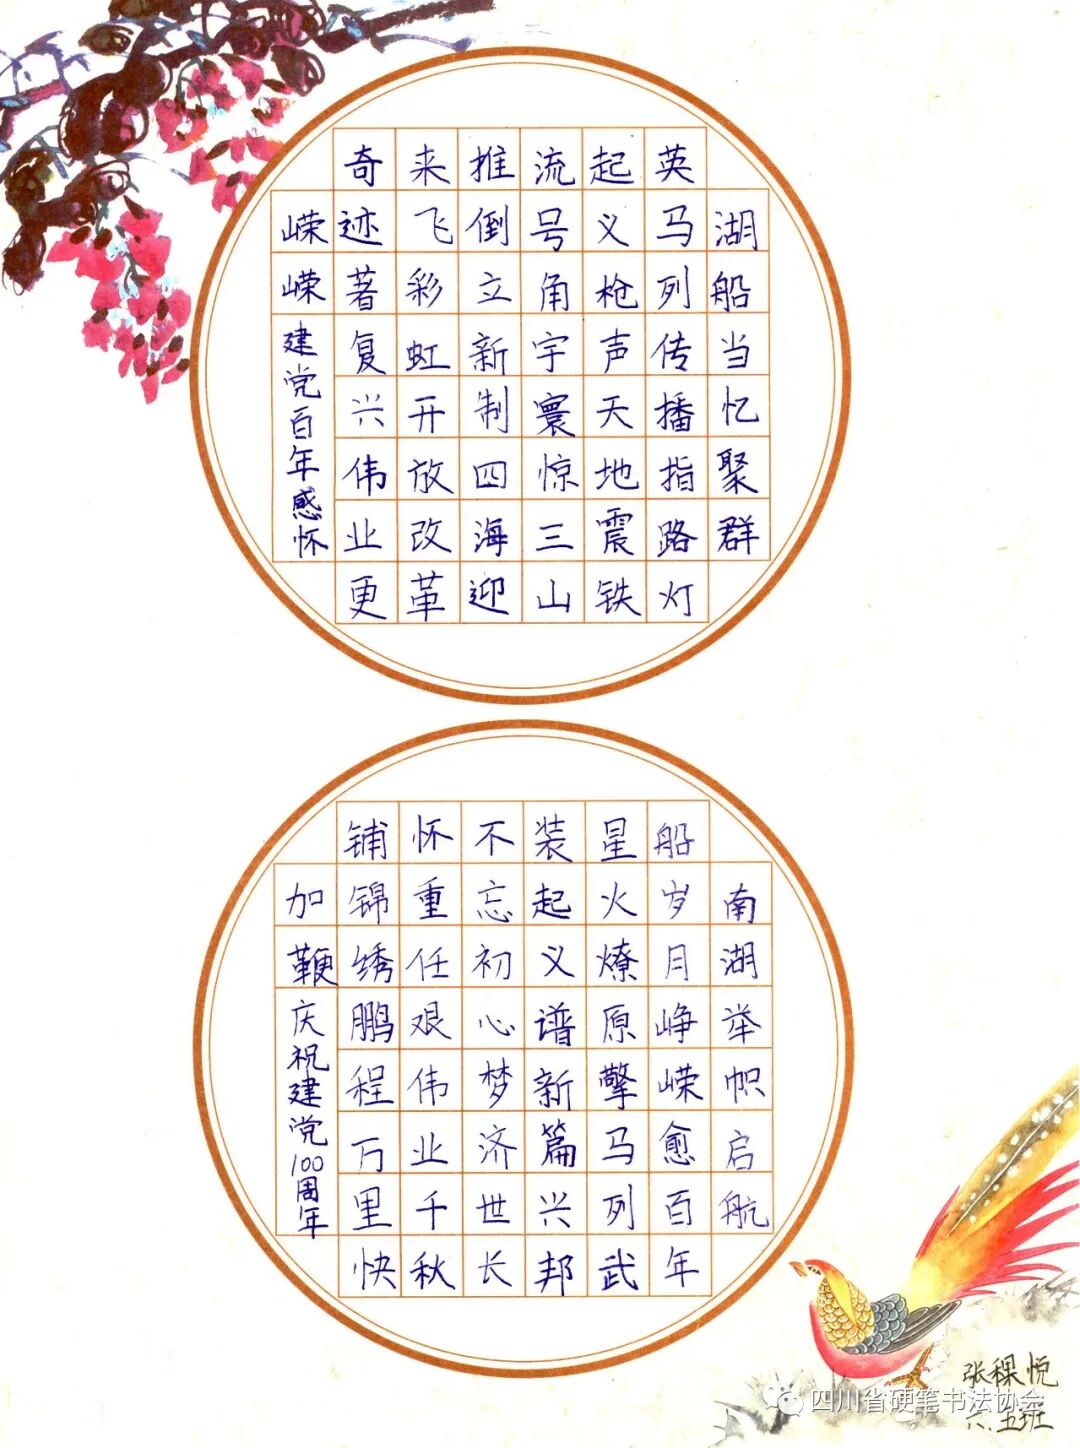 湖船当忆聚群
英马列传播指路灯
起义枪声天地震铁
流号角宇寰惊三山
推倒立新制四海迎
来飞彩虹开放改革
奇迹著复兴伟业更
嵘嵘
建党百年感怀
南湖举帜启航
船岁月峥嵘愈百年
星火燎原擎马列武
装起义谱新篇兴邦
不忘初心梦济世长
怀重任艰伟业千秋
铺锦绣鹏程万里快
加鞭
庆祝建党100周年
张稞悦
六.五班
四川省硬笔书法协会